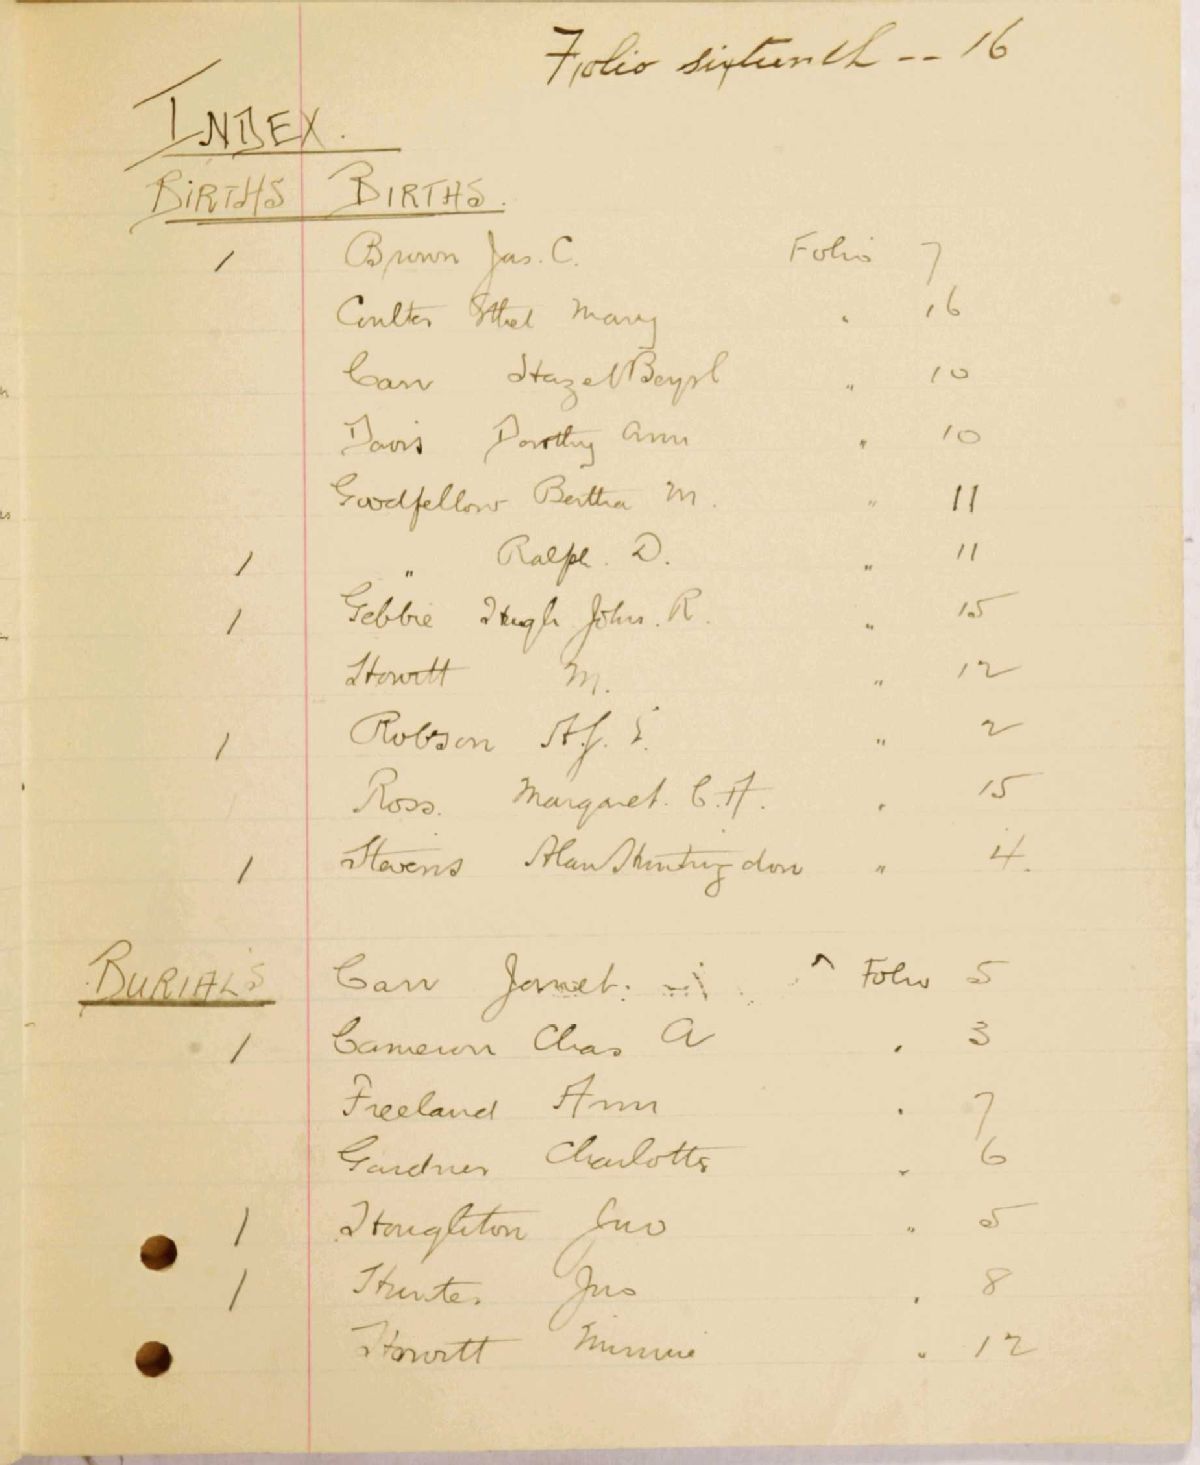 Folio sixteenth -- 16
INDEX.
BIRTHS BIRTHS.
1 Brown Jas. C. Folio 7
Coulter Ethel Mary " 16
Carr Hazel Beryl " 10
Davis Dorothy Ann " 10
Goodfellow Bertha M. " 11
1 " Ralph. D. " 11
1 Gebbie Hugh John. R. " 15
Howitt M. " 12
1 Robson " 2
Ross. Margaret. C. A. " 15
1 Stevens Alan Huntingdon " 4.
BURIALS Carr Janet. Folio 5
1 Cameron Chas A " 3
Freeland Ann " 7
Gardner Charlotte " 6
1 Houghton Jno " 5
1 Hunter Jno " 8
Howitt Minnie " 12